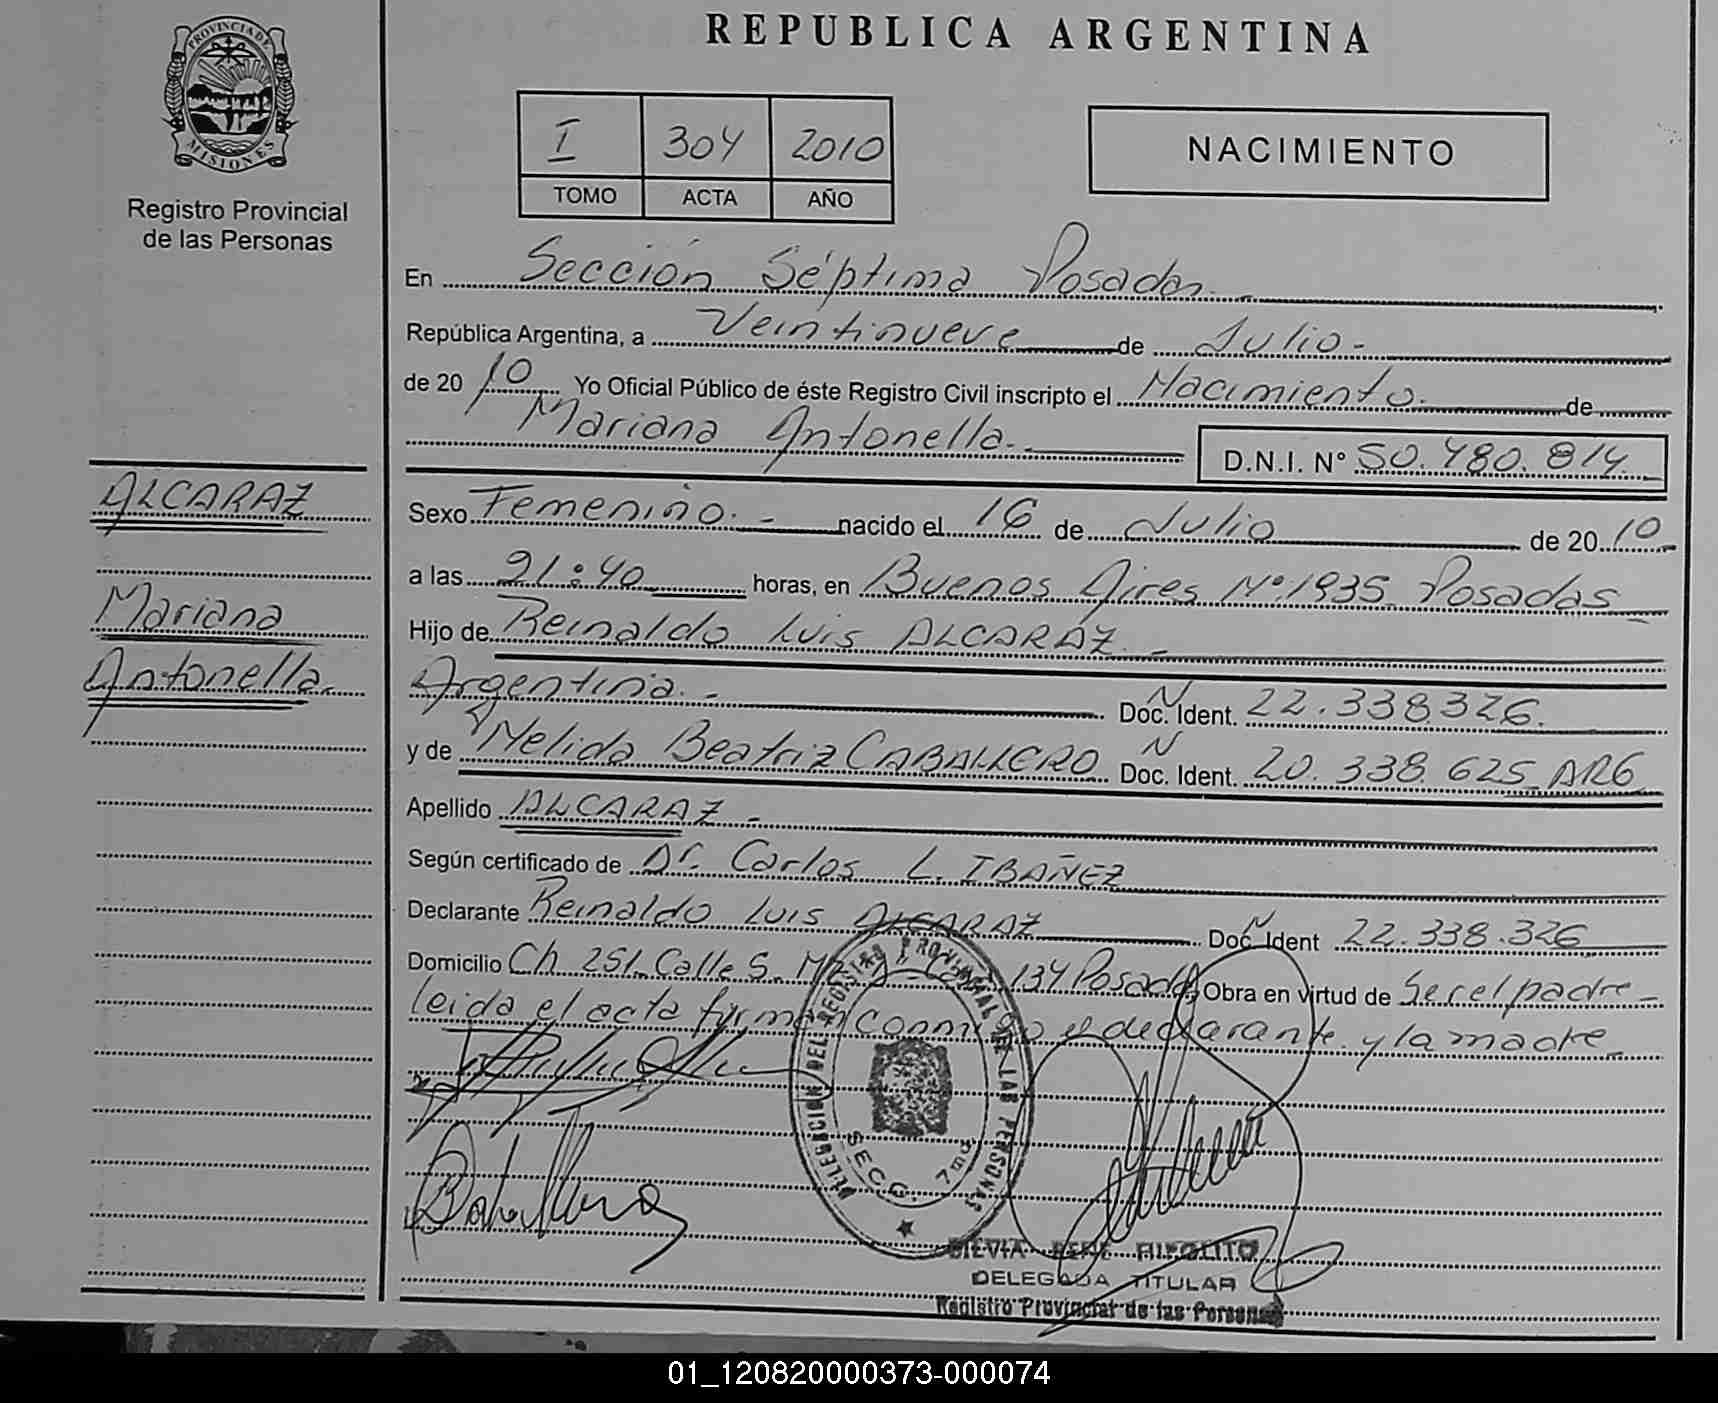 REPUBLICA ARGENTINA
PROVINCIA DE
MISIONES
Registro Provincial
de las Personas
I 304 2010
TOMO ACTA AÑO
NACIMIENTO
En Sección Séptima Posadas.
República Argentina, a Veintinueve de Julio.-
de 20 10 Yo Oficial Público de éste Registro Civil inscripto el Nacimiento. de
Mariana Antonella.
D.N.I. N° 50.480.814
ALCARAZ
Mariana
Antonella.
Sexo Femenino.- nacido el 16 de Julio de 20 10
a las 21:40 horas, en Buenos Aires Nº.1935. Posadas
Hijo de Reinaldo Luis ALCARAZ.-
Argentina.- Doc. Ident. N 22.338326.
y de Nelida Beatriz CABALLERO Doc. Ident. N 20.338.625 ARG
Apellido ALCARAZ.-
Según certificado de Dr. Carlos L. IBAÑEZ
Declarante Reinaldo Luis ALCARAZ Doc Ident N 22.338.326
Domicilio Ch. 251. Calle S. 134 Posadas Obra en virtud de Ser el padre-
leida el acta firman conmigo el declarante. y la madre
DELEGACION DEL REGISTRO PROVINCIAL DE LAS PERSONAS
SECC. 7ma
DELEGADA TITULAR
Registro Provincial de las Personas
01_120820000373-000074